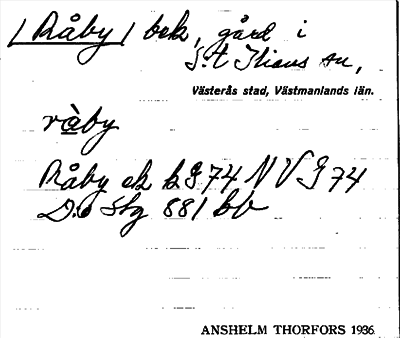 / Råby / bek, gård i
S:t Ilians sn,
Västerås stad, Västmanlands län.
ràby
Råby ek k G 74 N V G 74
D:o Stg 881 bb
ANSHELM THORFORS 1936